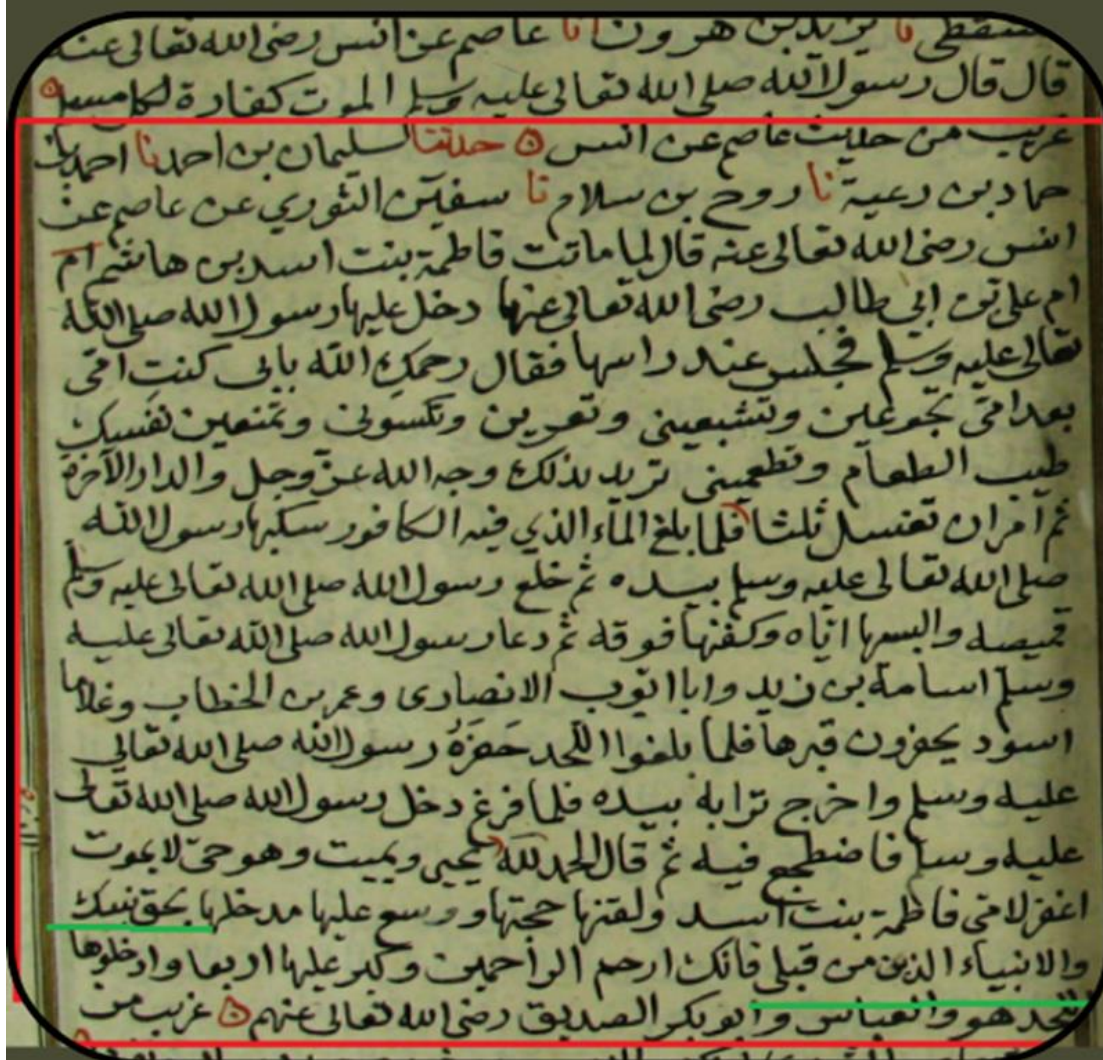 يزيد بن هرون انا عاصم عن انس رضي الله تعالى عنه
قال قال رسول الله صلى الله تعالى عليه وسلم الموت كفارة لكل مسلم
غريب من حديث عاصم عن انس ۞ حدثنا سليمان بن احمد نا احمد بن
حماد بن رغبة نا روح بن صلاح نا سفين الثوري عن عاصم عن
انس رضي الله تعالى عنه قال لما ماتت فاطمة بنت اسد بن هاشم ام
ام علي بن ابي طالب رضي الله تعالى عنها دخل عليها رسول الله صلى الله
تعالى عليه وسلم فجلس عند راسها فقال رحمكِ الله يا امي كنتِ امي
بعد امي تجوعين وتشبعيني وتعرين وتكسوني وتمنعين نفسك
طيب الطعام وتطعميني تريد بذلك وجه الله عزّ وجل والدار الآخرة
ثم امر ان تغسل ثلثا فلما بلغ الماء الذي فيه الكافور سكبها رسول الله
صلى الله تعالى عليه وسلم بيده ثم خلع رسول الله صلى الله تعالى عليه وسلم
قميصه والبسها اياه وكفنها فوقه ثم دعا رسول الله صلى الله تعالى عليه
وسلم اسامة بن زيد وابا ايوب الانصارى وعمر بن الخطاب وغلاما
اسود يحفرون قبرها فلما بلغوا اللحد حَفَرَهُ رسول الله صلى الله تعالي
عليه وسلم واخرج ترابه بيده فلما فرغ دخل رسول الله صلى الله تعالى
عليه وسلم فاضطجع فيه ثم قال الحمد لله يحيي ويميت وهو حيّ لا يموت
اغفر لامي فاطمة بنت اسد ولقنها حجتها ووسع عليها مدخلها بحق نبيك
والانبياء الذين من قبلي فانك ارحم الراحمين وكبر عليها اربعا وادخلوها
اللحد هو والعباس وابو بكر الصديق رضي الله تعالى عنهم ۞ غريب من